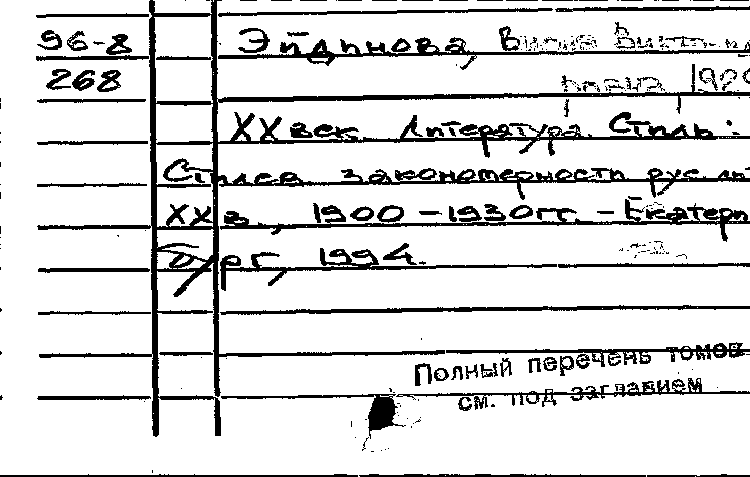 96-8 Эйдинова,
268 1929
XX век. Литература. Стиль:
Стилев закономерности рус. лит
XX в., 1900-1930 гг. - Екатерин
бург, 1994.
Полный перечень томов
см. под заглавием